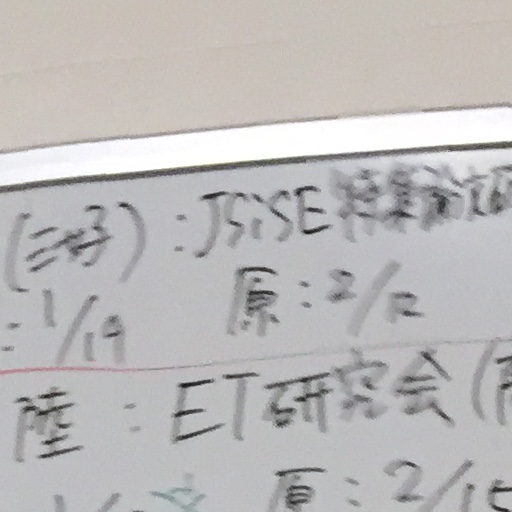 (三好):JSiSE 特集論文研
:1/19 原:2/12
陸:ET研究会(
原:2/15